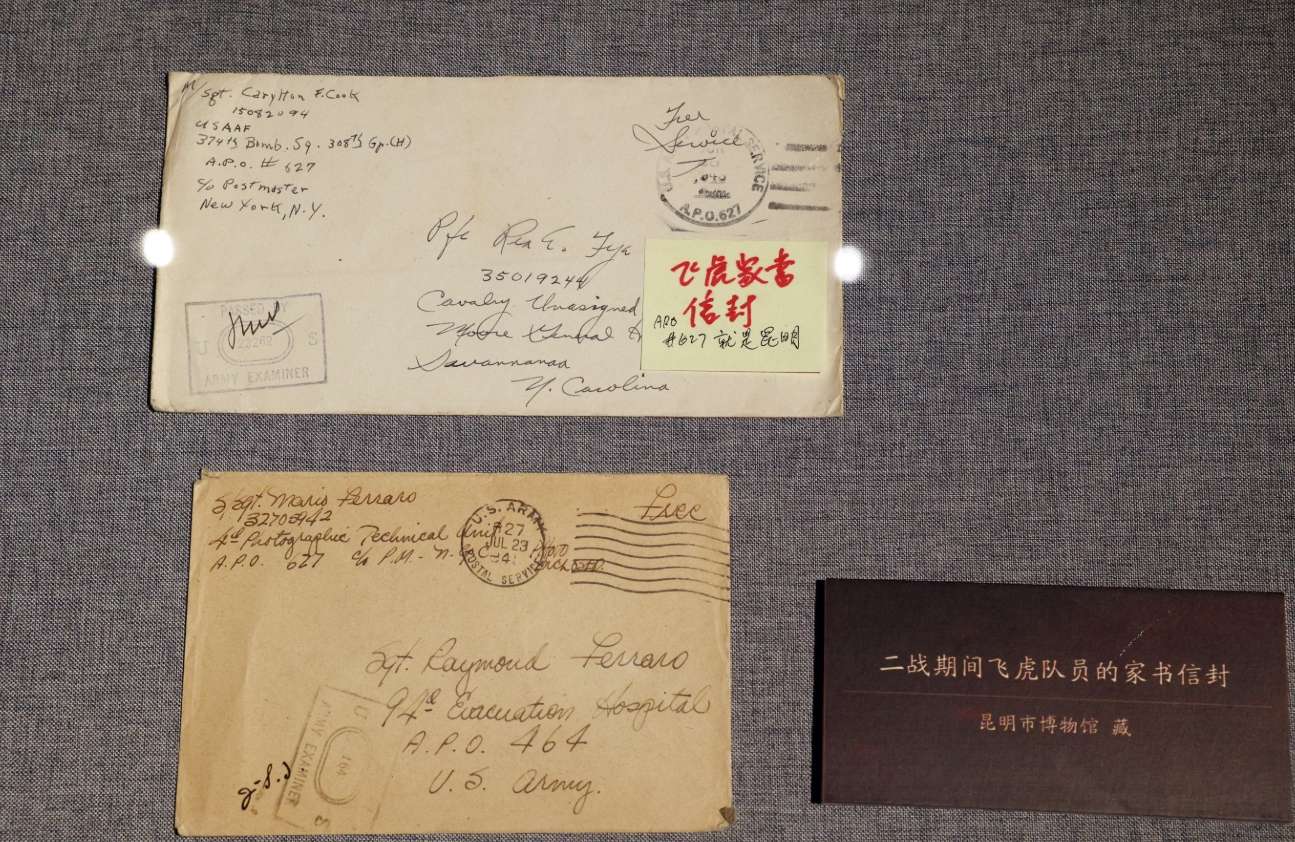 M/Sgt. Carylton F. Cook
15082094
USAAF
374th Bomb. Sq. 308th Gp.(H)
A.P.O. # 627
c/o Postmaster
New York, N.Y.
Free
Service
POSTAL SERVICE
A.P.O. 627
Pfc Rex E. Frye
35019244
Cavalry Unassigned
Moore General
Swannanoa
N. Carolina
飞虎家书
信封
APO
#627 就是昆明
PASSED BY
U 22262 S
ARMY EXAMINER
S Sgt. Mario Ferraro
32703942
4th Photographic Technical Unit
A.P.O. 627 c/o P.M. - N.
U.S. ARMY
JUL 23
POSTAL SERVICE
Free
Sgt. Raymond Ferraro
94th Evacuation Hospital
A.P.O. 464
U.S. Army.
U 164 S
ARMY EXAMINER
二战期间飞虎队员的家书信封
昆明市博物馆 藏